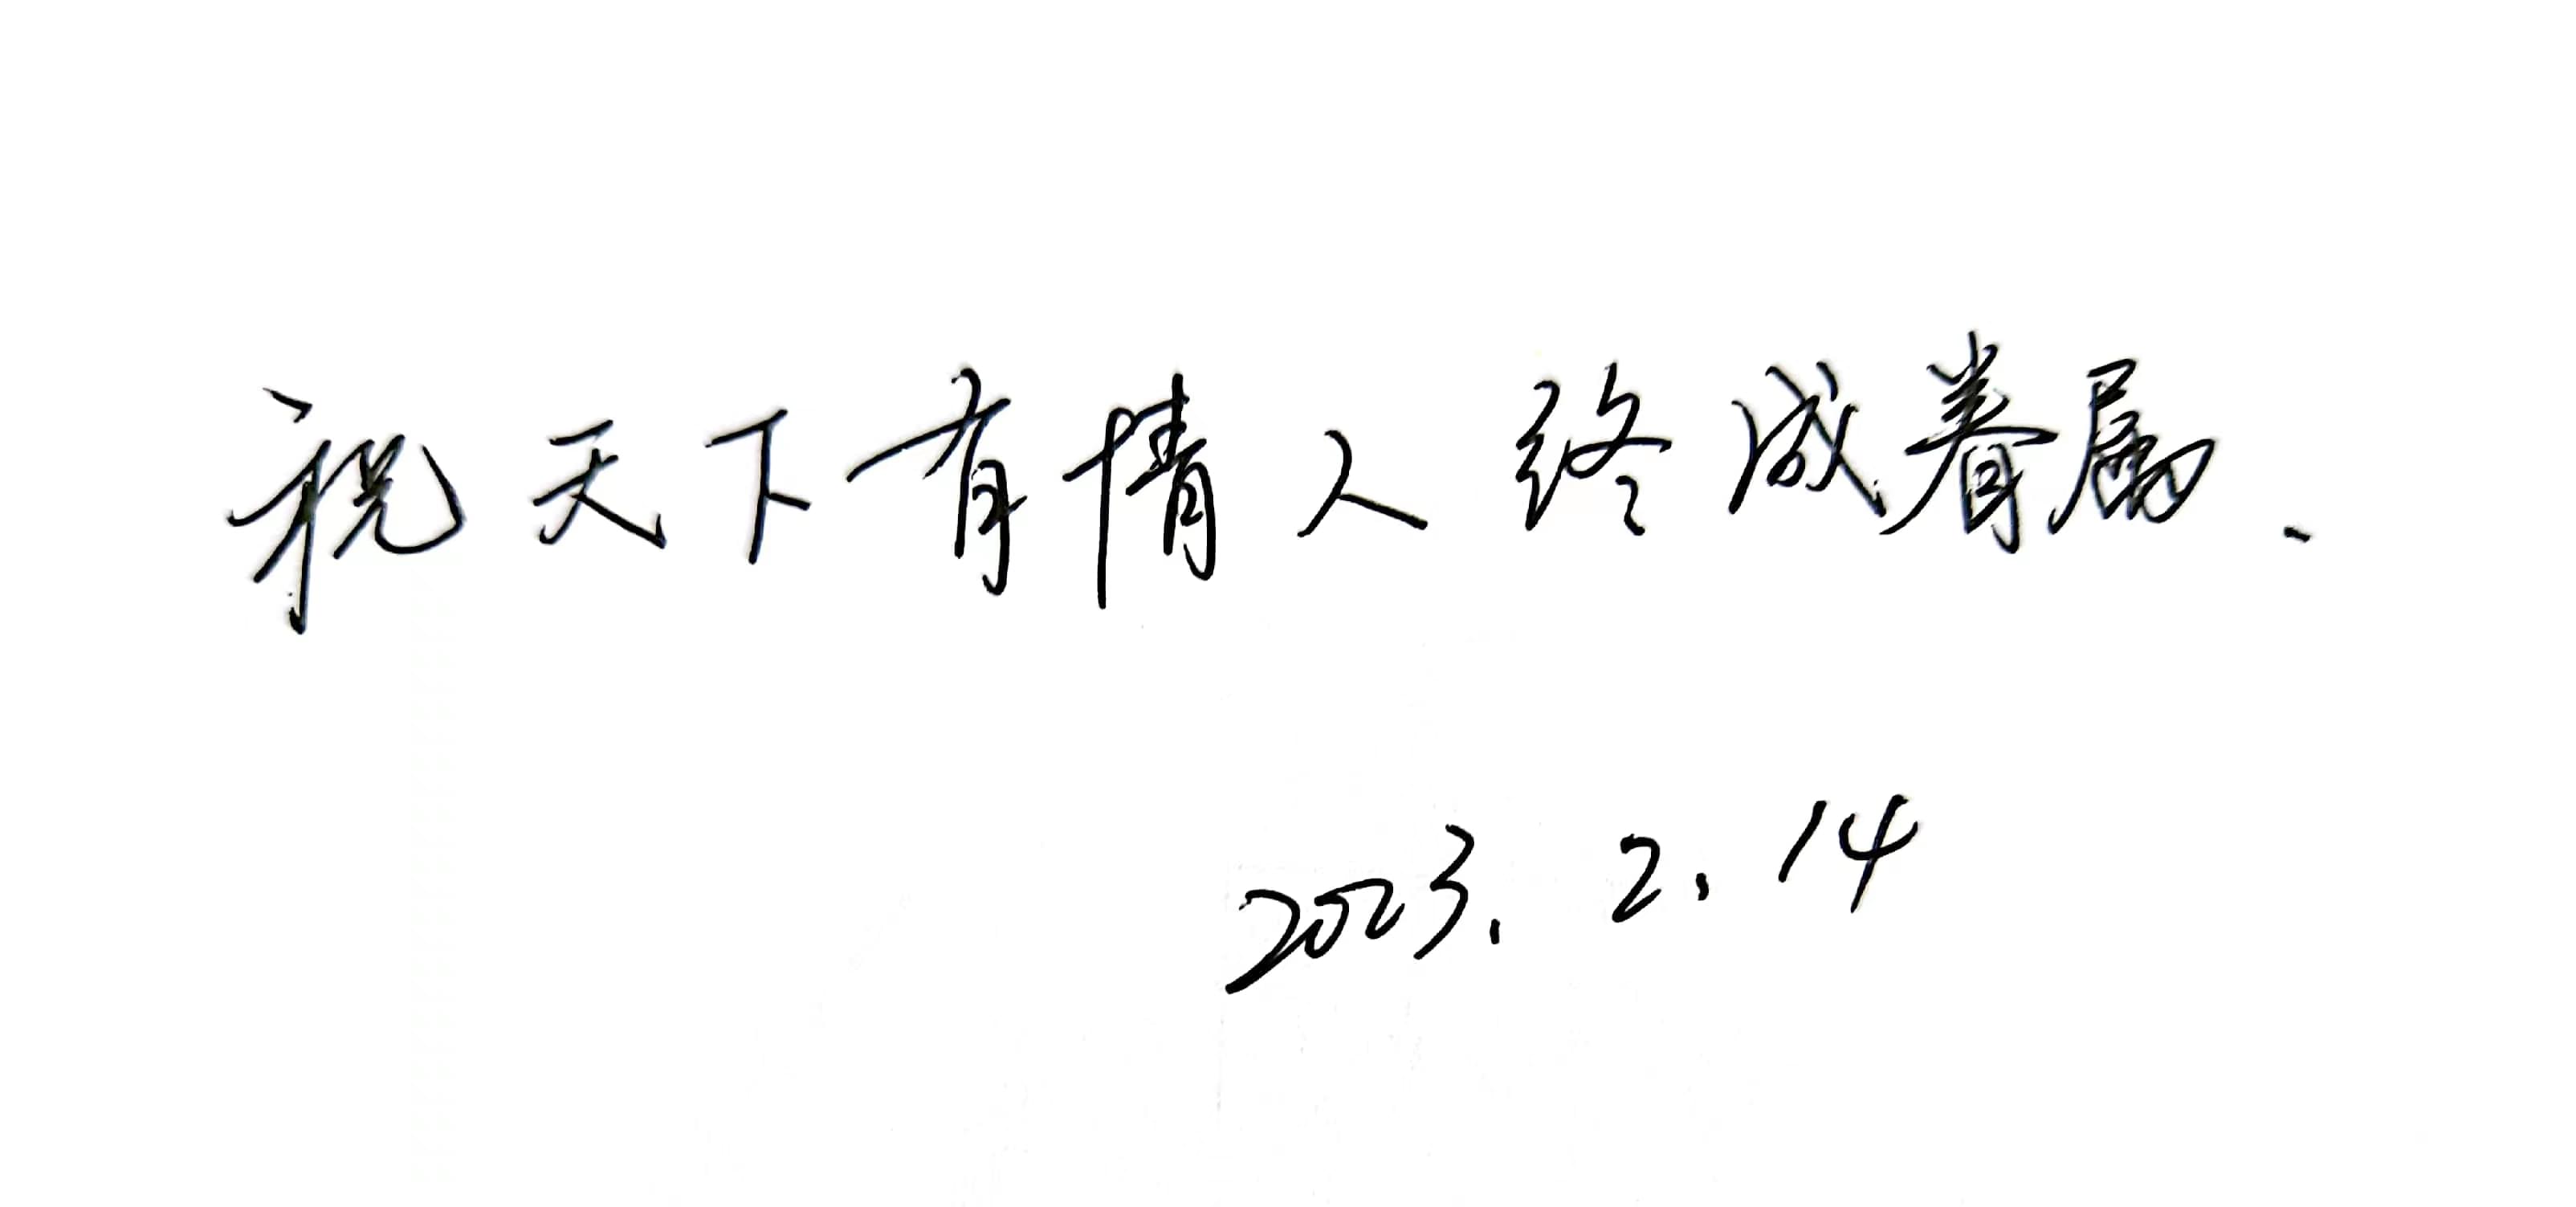 祝天下有情人终成眷属.
2023.2.14